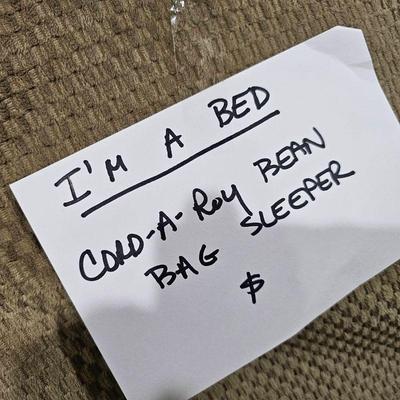 I'M A BED
CORD-A-ROY BEAN
BAG SLEEPER
$